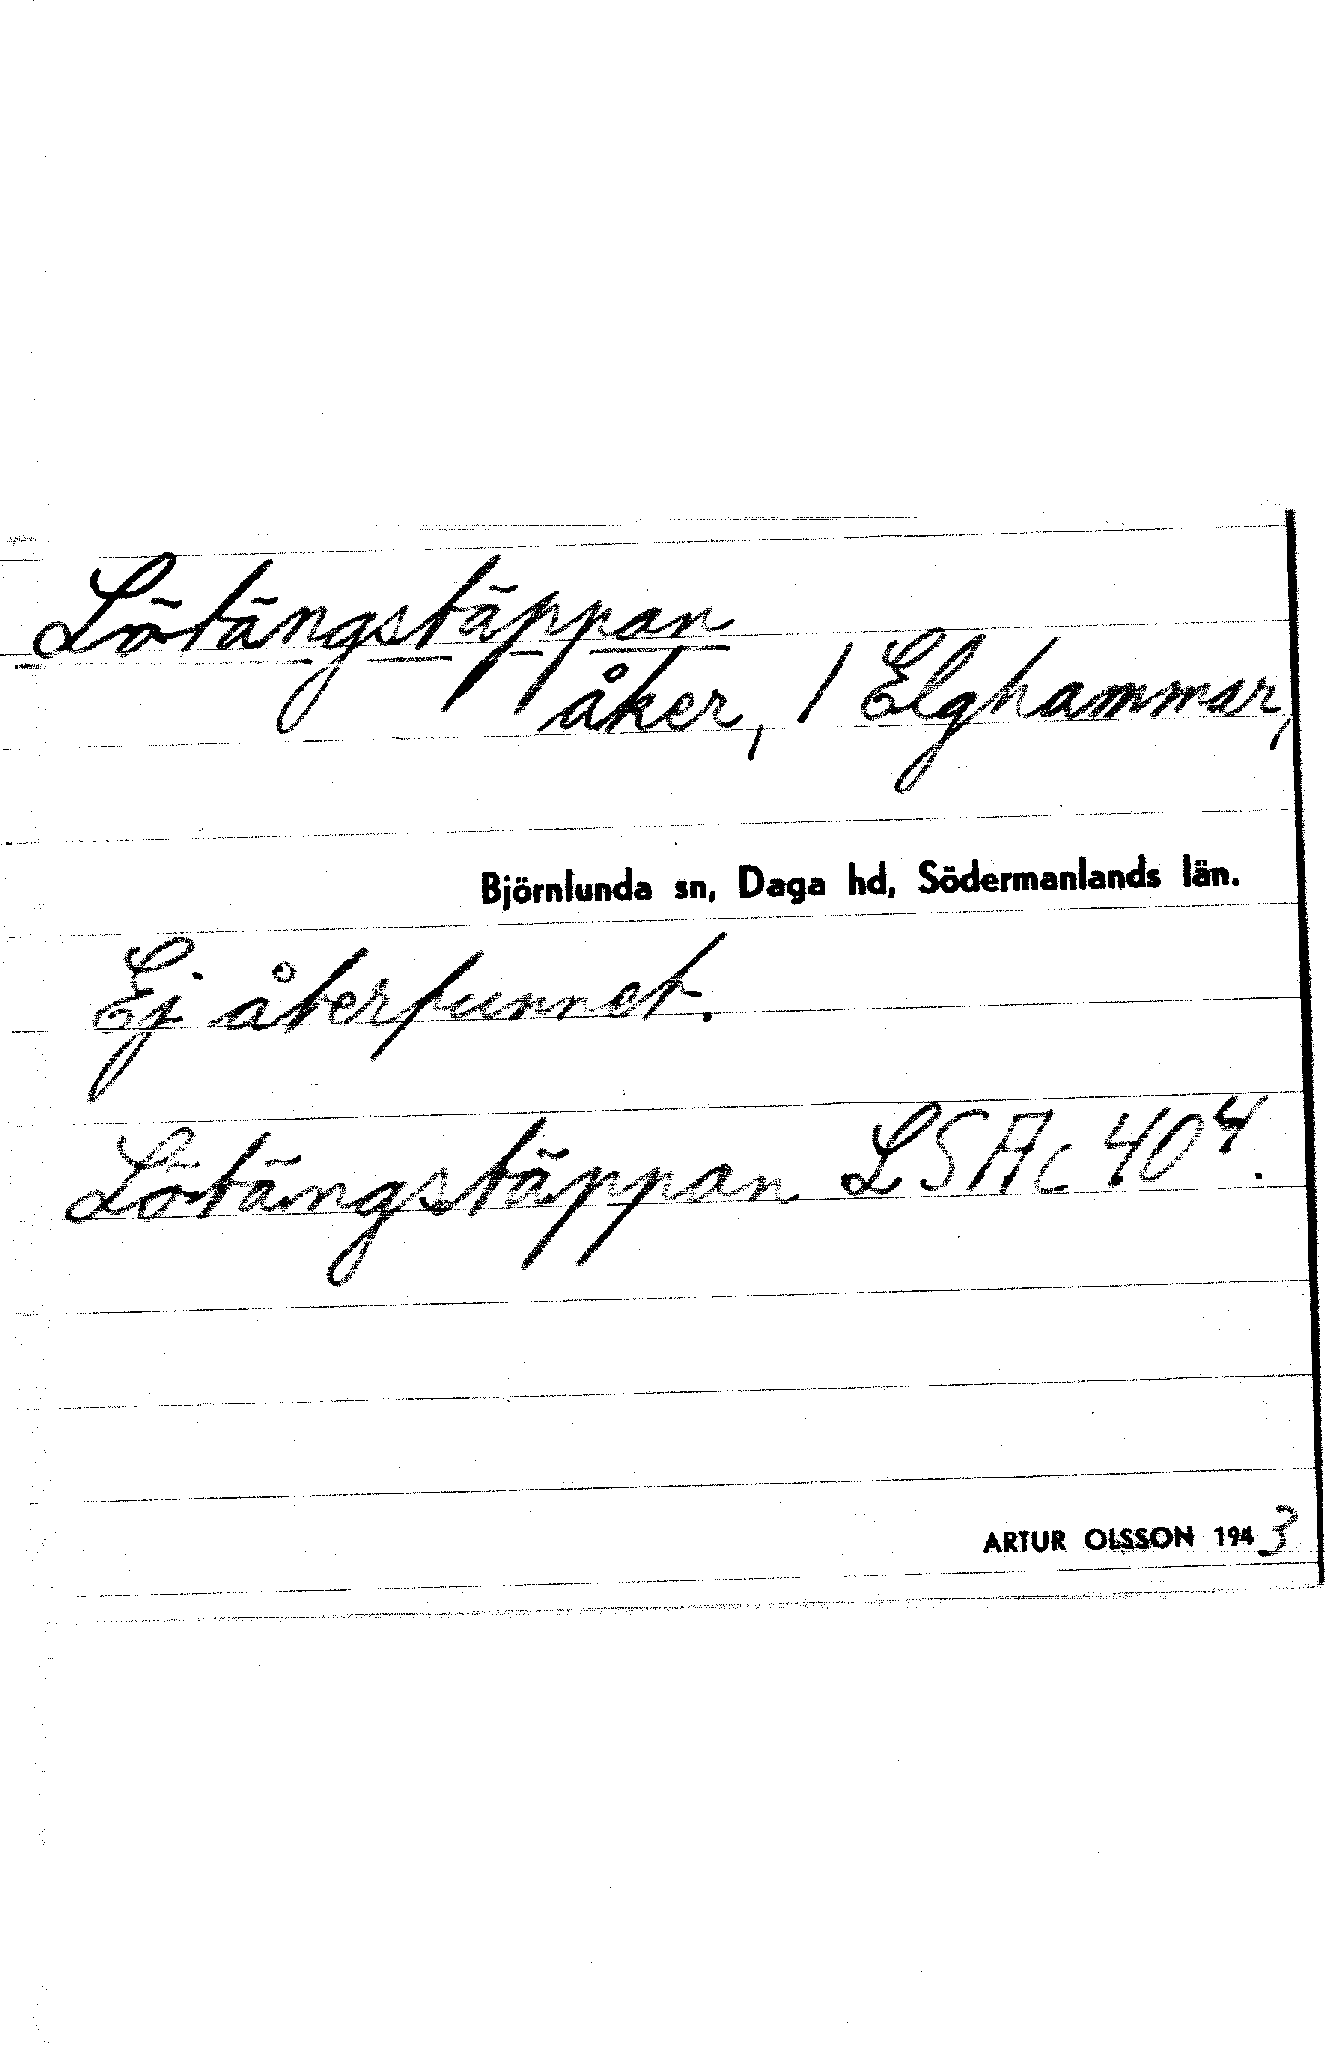 Lötängstäppan
åker, / Elghammar,
Björnlunda sn, Daga hd, Södermanlands län.
Ej återfunnet.
Lötängstäppan LSAc 40⁴.
ARTUR OLSSON 1943